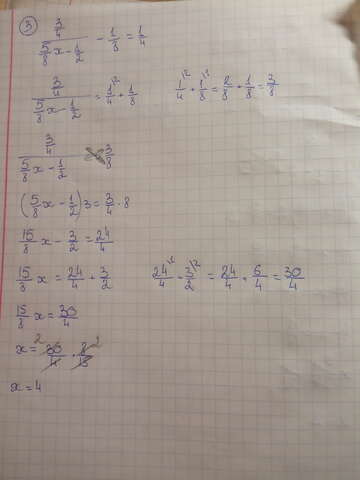 ③ (3/4)/(5/8 x - 1/2) - 1/8 = 1/4
(3/4)/(5/8 x - 1/2) = 1/4 \2 + 1/8
1/4 \2 + 1/8 \1 = 2/8 + 1/8 = 3/8
(3/4)/(5/8 x - 1/2) 3/8
(5/8 x - 1/2) 3 = 3/4 · 8
15/8 x - 3/2 = 24/4
15/8 x = 24/4 + 3/2
24/4 \1 + 3/2 \2 = 24/4 + 6/4 = 30/4
15/8 x = 30/4
x = 30/4 · 8/15 2 2
x = 4